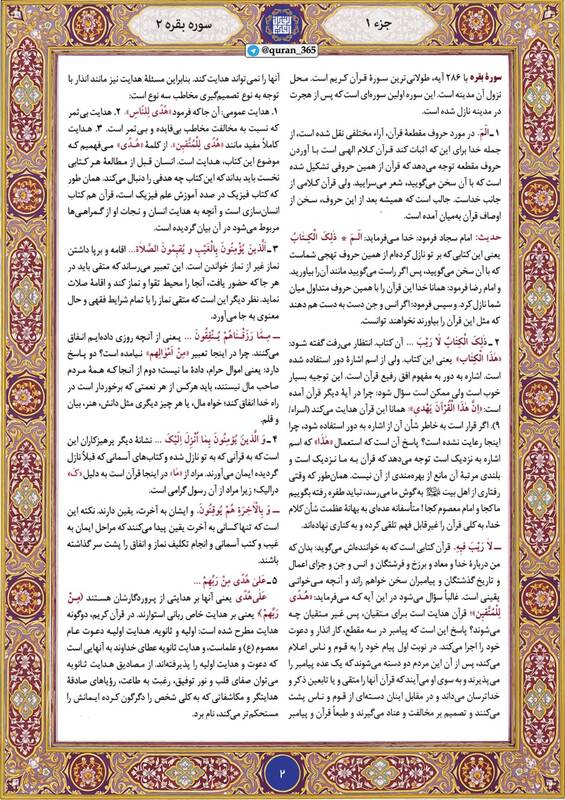 جزء ۱
@quran_365
سوره بقره ۲
سورهٔ بقره با ۲۸۶ آیه، طولانی‌ترین سورهٔ قرآن کریم است. محل
نزول آن مدینه است. این سوره اولین سوره‌ای است که پس از هجرت
در مدینه نازل شده است.
۱ـ الٓمٓ. در مورد حروف مقطعهٔ قرآن، آراء مختلفی نقل شده است، از
جمله خدا برای این که اثبات کند قرآن کلام الهی است با آوردن
حروف مقطعه توجه می‌دهد که قرآن از همین حروفی تشکیل شده
است که با آن سخن می‌گویید، شعر می‌سرایید. ولی قرآن کلامی از
جانب خداست. جالب است که همیشه بعد از این حروف، سخن از
اوصاف قرآن به‌میان آمده است.
حدیث: امام سجاد فرمود: خدا می‌فرماید: الٓمٓ * ذٰلِکَ الْکِتَابُ
یعنی این کتابی که بر تو نازل کرده‌ام از همین حروف تهجی شماست
که با آن سخن می‌گویید، پس اگر راست می‌گویید مانند آن‌را بیاورید.
و امام رضا فرمود: همانا خدا این قرآن را با همین حروف متداول میان
شما نازل کرد. و سپس فرمود: اگر انس و جن دست به دست هم دهند
که مثل این قرآن را بیاورند نخواهند توانست.
۲ـ ذٰلِکَ الْکِتَابُ لَا رَیْبَ ... آن کتاب. انتظار می‌رفت گفته شود:
«هٰذَا الْکِتَابُ» یعنی این کتاب. ولی از اسم اشارهٔ دور استفاده شده
است. اشاره به دور به مفهوم افق رفیع قرآن است. این توجیه بسیار
خوب است ولی ممکن است سؤال شود: چرا در آیهٔ دیگر قرآن آمده
است: «اِنَّ هٰذَا الْقُرْآنَ یَهْدِی»: همانا این قرآن هدایت می‌کند (اسراء/
۹). اگر قرار است به خاطر شأن آن از اشاره به دور استفاده شود، چرا
اینجا رعایت نشده است؟ پاسخ آن است که استعمال «هٰذَا» که اسم
اشاره به نزدیک است توجه می‌دهد که قرآن به ما نزدیک است و
بلندی مرتبهٔ آن مانع از بهره‌مندی از آن نیست. همان‌طور که وقتی
رفتاری از اهل بیت به گوش ما می‌رسد، نباید طفره رفته بگوییم
ما کجا و امام معصوم کجا! متأسفانه عده‌ای به بهانهٔ عظمت شأن کلام
خدا، به کلی قرآن را غیرقابل فهم تلقی کرده و به کناری نهاده‌اند.
ــ لَا رَیْبَ فِیهِ. قرآن کتابی است که به خواننده‌اش می‌گوید: بدان که
من دربارهٔ خدا و معاد و برزخ و فرشتگان و انس و جن و جزای اعمال
و تاریخ گذشتگان و پیامبران سخن خواهم راند و آنچه می‌خوانی
یقینی است. غالباً سؤال می‌شود در این آیه که می‌فرماید: «هُدًی
لِلْمُتَّقِینَ»؛ قرآن هدایت است برای متقیان، پس غیر متقیان چه
می‌شوند؟ پاسخ این است که پیامبر در سه مقطع، کار انذار و دعوت
خود را اجرا می‌کند. در نوبت اول پیام خود را به قوم و ناس اعلام
می‌کند، پس از آن این مردم دو دسته می‌شوند که یک عده پیامبر را
می‌پذیرند و به سوی او می‌آیند که قرآن آنها را متقی و یا تابعین ذکر و
خداترسان می‌داند و در مقابل اینان دسته‌ای از قوم و ناس پشت
می‌کنند و تصمیم بر مخالفت و عناد می‌گیرند و طبعاً قرآن و پیامبر
آنها را نمی‌تواند هدایت کند. بنابراین مسئلهٔ هدایت نیز مانند انذار با
توجه به نوع تصمیم‌گیری مخاطب سه نوع است:
۱. هدایت عمومی: آن جا که فرمود «هُدًی لِلنَّاسِ». ۲. هدایت بی‌ثمر
که نسبت به مخالفت مخاطب بی‌فایده و بی‌ثمر است. ۳. هدایت
کاملاً مفید مانند «هُدًی لِلْمُتَّقِینَ». از کلمهٔ «هُدًی» می‌فهمیم که
موضوع این کتاب، هدایت است. انسان قبل از مطالعهٔ هر کتابی
نخست باید بداند که این کتاب چه هدفی را دنبال می‌کند. همان طور
که کتاب فیزیک در صدد آموزش علم فیزیک است، قرآن هم کتاب
انسان‌سازی است و آنچه به هدایت انسان و نجات او از گمراهی‌ها
مربوط می‌شود در آن بیان گردیده است.
۳ـ اَلَّذِینَ یُؤْمِنُونَ بِالْغَیْبِ وَ یُقِیمُونَ الصَّلَاةَ... اقامه و برپا داشتن
نماز غیر از نماز خواندن است. این تعبیر می‌رساند که متقی باید در
هر جا که حضور یافت، آنجا را محیط تقوا و نماز کند و اقامهٔ صلات
نماید. نظر دیگر این است که متقی نماز را با تمام شرایط فقهی و حال
معنوی به جا می‌آورد.
ــ مِمَّا رَزَقْنَاهُمْ یُنْفِقُونَ ... یعنی از آنچه روزی داده‌ایم انفاق
می‌کنند. چرا در اینجا تعبیر «مِنْ اَمْوَالِهِمْ» نیامده است؟ دو پاسخ
دارد: یعنی اموال حرام، دادهٔ ما نیست؛ دوم از آنجا که همهٔ مردم
صاحب مال نیستند، باید هرکس از هر نعمتی که برخوردار است در
راه خدا انفاق کند؛ خواه مال، یا هر چیز دیگری مثل دانش، هنر، بیان و
قلم.
۴ـ وَ الَّذِینَ یُؤْمِنُونَ بِمَا اُنْزِلَ اِلَیْکَ ... نشانهٔ دیگر پرهیزکاران این
است که به قرآنی که به تو نازل شده و کتاب‌های آسمانی که قبلاً نازل
گردیده ایمان می‌آورند. مراد از «مَا» در اینجا قرآن است به دلیل «کَ»
درالیک؛ زیرا مراد از آن رسول گرامی است.
ــ وَ بِالْاٰخِرَةِ هُمْ یُوقِنُونَ. و ایشان به آخرت، یقین دارند. نکته این
است که تنها کسانی به آخرت یقین پیدا می‌کنند که مراحل ایمان به
غیب و کتب آسمانی و انجام تکلیف نماز و انفاق را پشت سر گذاشته
باشند.
۵ـ عَلیٰ هُدًی مِنْ رَبِّهِمْ ...
عَلیٰ هُدًی یعنی آنها بر هدایتی از پروردگارشان هستند (مِنْ
رَبِّهِمْ) یعنی بر هدایت خاص ربانی استوارند. در قرآن کریم، دوگونه
هدایت مطرح شده است: اولیه و ثانویه. هدایت اولیه دعوت عام
معصوم (ع) و علماست، و هدایت ثانویه عطای خداوند به آنهایی است
که دعوت و هدایت اولیه را پذیرفته‌اند. از مصادیق هدایت ثانویه
می‌توان صفای قلب و نور توفیق، رغبت به طاعت، رؤیاهای صادقهٔ
هدایتگر و مکاشفاتی که به کلی شخص را دگرگون کرده ایمانش را
مستحکم‌تر می‌کند، نام برد.
۲